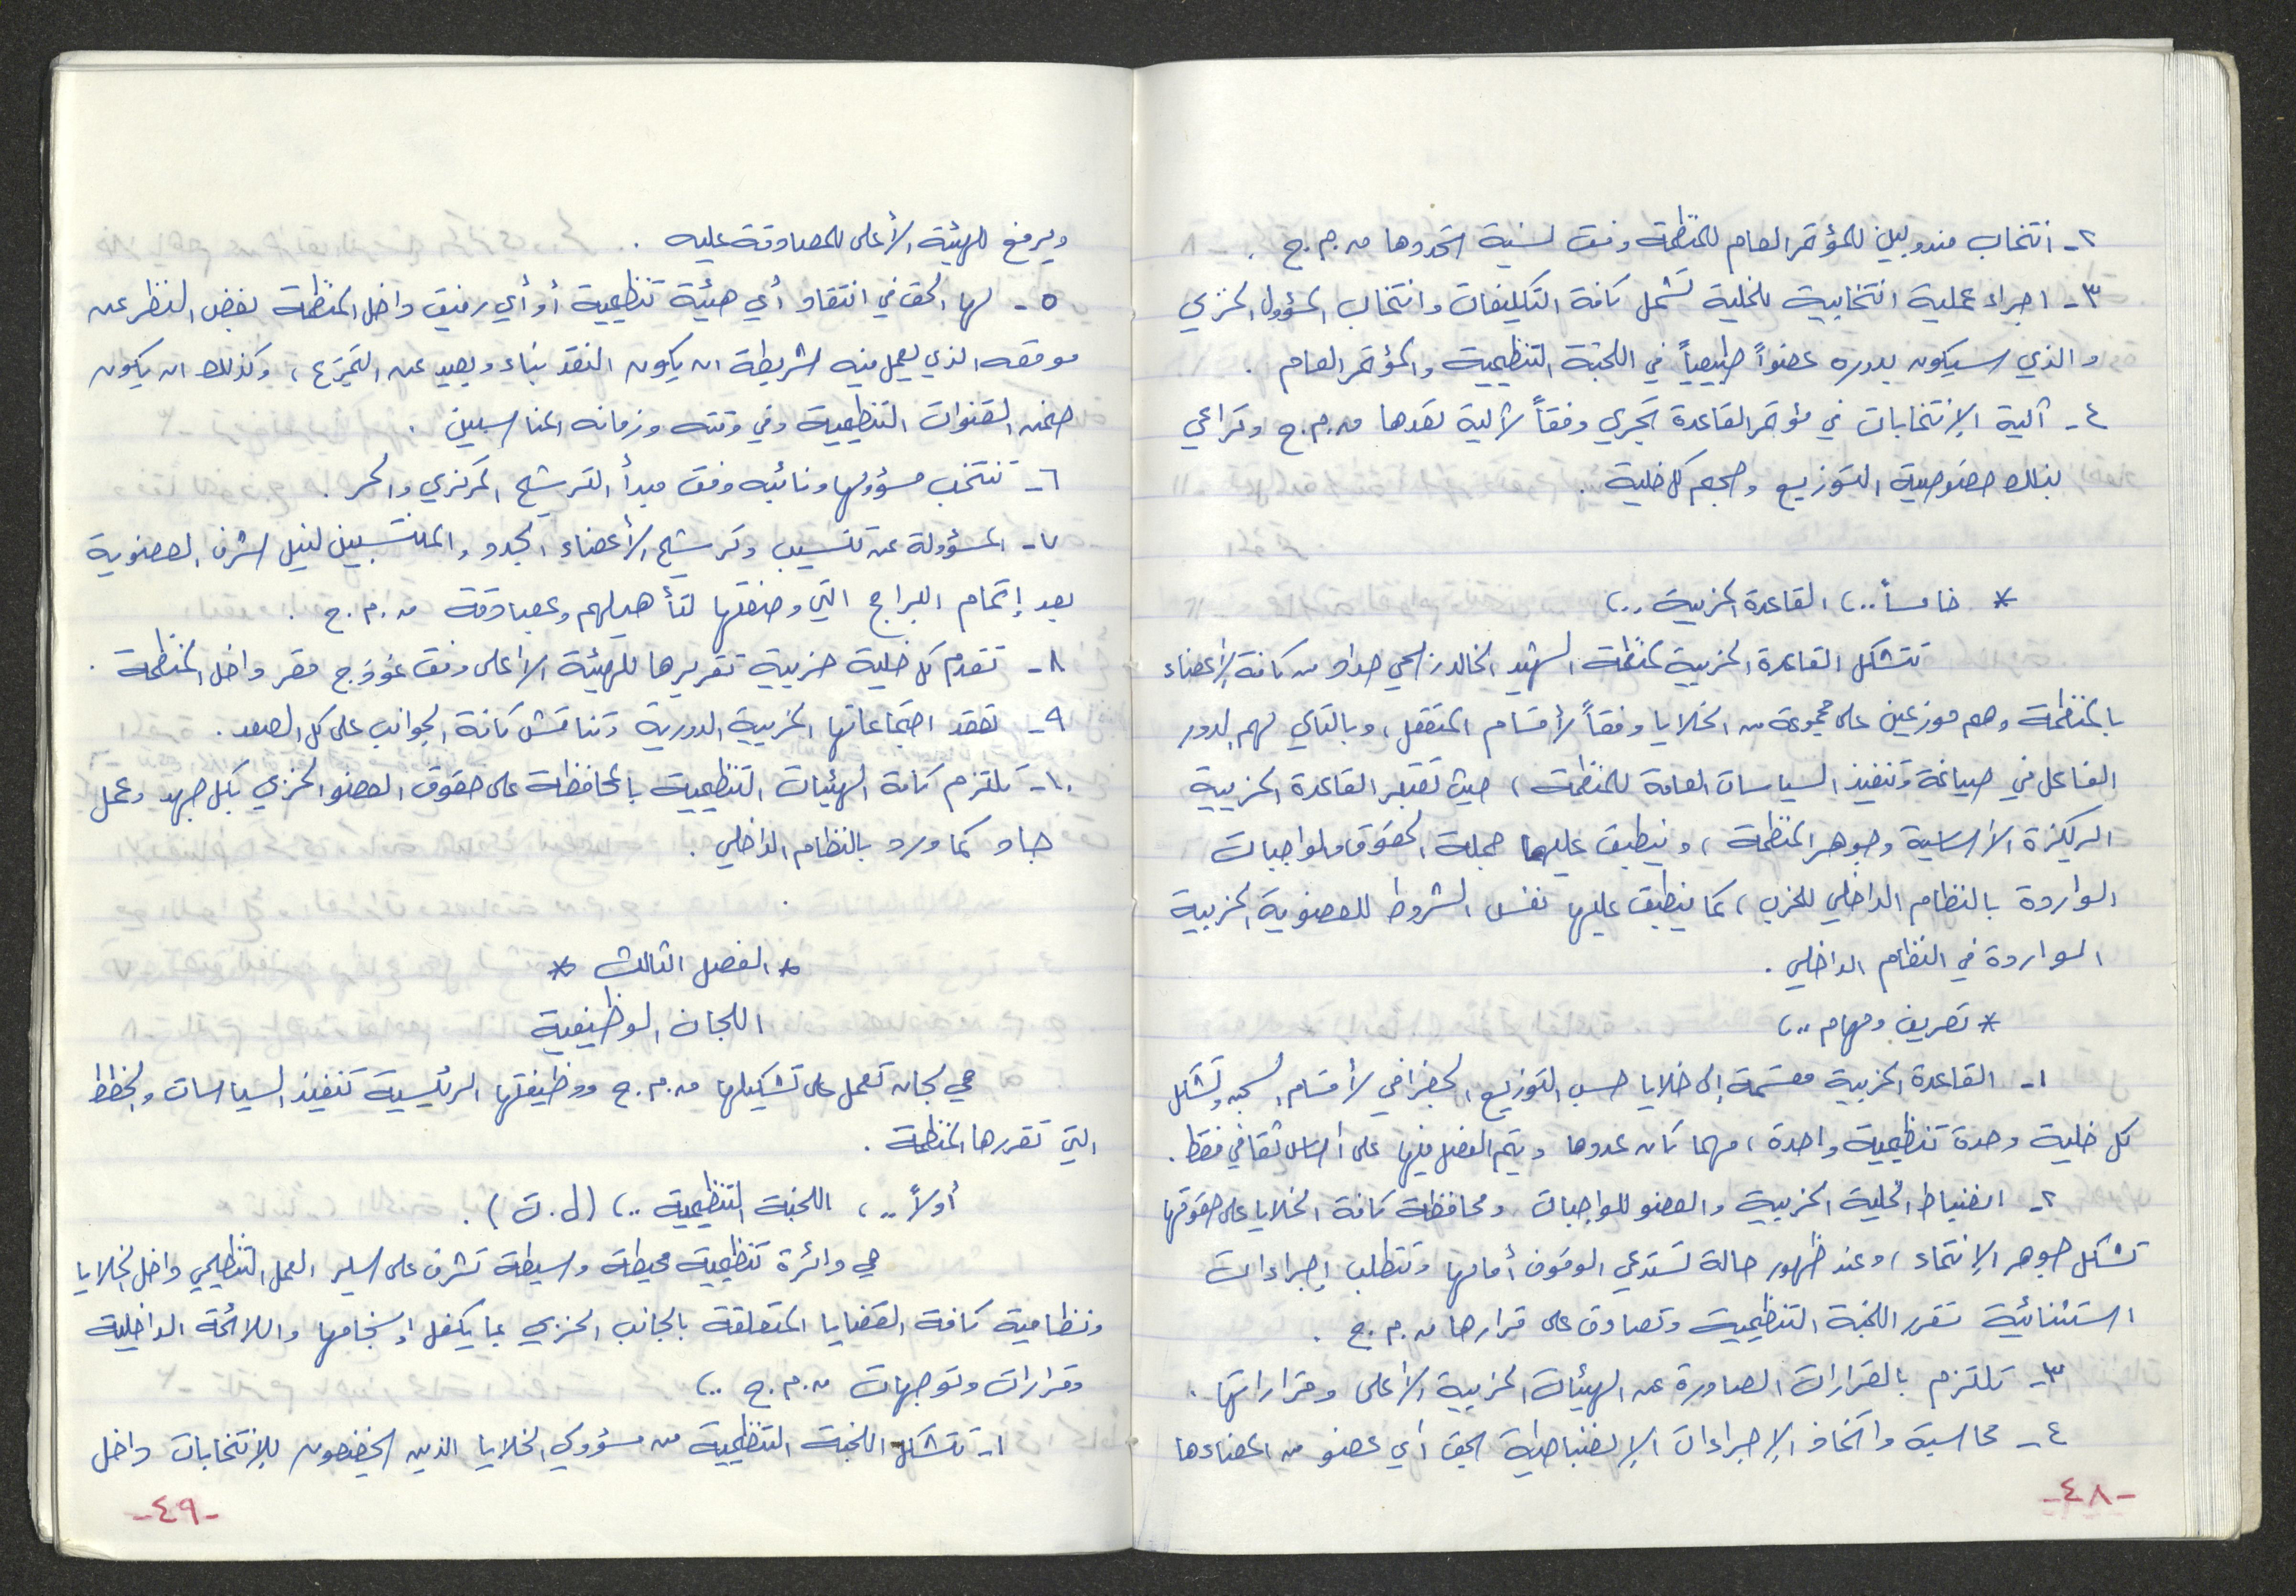 ٢- انتخاب مندوبين للمؤتمر العام للمنظمة وفق نسبة تحددها م.م.ج .
٣- اجراء عملية انتخابية للخلية تشمل كافة التكليفات وانتخاب المسؤول الحزبي
والذي سيكون بدوره عضواً طبيعياً في اللجنة التنظيمية والمؤتمر العام .
٤- آلية الإنتخابات في مؤتمر القاعدة تجري وفقاً لآلية تقدها م.م.ج وتراعي
بذلك خصوصية التوزيع وحجم كل خلية .
* خامساً..، القاعدة الحزبية ..،
تتشكل القاعدة الحزبية لمنظمة الشهيد الخالد من كافة الأعضاء
بالمنظمة وهم موزعين على مجموعة من الخلايا وفقاً لأقسام المعتقل، وبالتالي لهم الدور
الفاعل في صياغة وتنفيذ السياسات العامة للمنظمة، حيث تعتبر القاعدة الحزبية
الركيزة الأساسية وجوهر المنظمة، وينطبق عليها جملة الحقوق والواجبات
الواردة بالنظام الداخلي للحزب، كما ينطبق عليها نفس الشروط للعضوية الحزبية
الواردة في النظام الداخلي .
* تعريف ومهام ..،
١- القاعدة الحزبية مقسمة إلى خلايا حسب التوزيع الجغرافي لأقسام السجن وتشكل
كل خلية وحدة تنظيمية واحدة، مهما كان عددها ويتم الفصل فيها على أساس ثقافي فقط .
٢- انضباط الخلية الحزبية والعضو للواجبات ومحافظة كافة الخلايا على حقوقها
تشكل جوهر الإنتماء، وعند ظهور حالة تستدعي الوقوف أمامها وتتطلب إجراءات
استثنائية تقرر اللجنة التنظيمية وتصادق على قرارها م.م.ج .
٣- تلتزم بالقرارات الصادرة عن الهيئات الحزبية الأعلى وقراراتها .
٤- محاسبة واتخاذ الإجراءات الإنضباطية بحق أي عضو من أعضاءها
-٤٨-
ويرفع للهيئة الأعلى للمصادقة عليه .
٥- لها الحق في انتقاد أي هيئة تنظيمية أو أي رفيق داخل المنظمة بغض النظر عن
موقعه الذي يعمل فيه شريطة ان يكون النقد بناء وبعيد عن ، وكذلك ان يكون
ضمن القنوات التنظيمية وفي وقته وزمانه المناسبين .
٦- تنتخب مسؤولها ونائبه وفق مبدأ الترشيح المركزي والحر .
٧- المسؤولة عن تنسيب وترشيح الأعضاء الجدد والمنتسبين لنيل شرف العضوية
بعد إتمام البرامج التي وضعتها لتأهيلهم وبمصادقة م.م.ج .
٨- تقدم كل خلية حزبية تقريرها للهيئة الأعلى وفق نموذج مقر داخل المنظمة .
٩- تعقد اجتماعاتها الحزبية الدورية وتناقش كافة الجوانب على كل الصعد .
١٠- تلتزم كافة الهيئات التنظيمية بالمحافظة على حقوق العضو الحزبي بكل جهد وعمل
جاد كما ورد بالنظام الداخلي .
* الفصل الثالث *
اللجان الوظيفية
هي لجان تعمل على تشكيلها م.م.ج ووظيفتها الرئيسية تنفيذ السياسات والخطط
التي تقررها المنظمة .
أولاً ..، اللجنة التنظيمية ..، (ل.ت) .
هي دائرة تنظيمية محيطة وسيطة تشرف على سير العمل التنظيمي داخل الخلايا
ونظامية كافة القضايا المتعلقة بالجانب الحزبي بما يكفل انسجامها واللائحة الداخلية
وقرارات وتوجهات م.م.ج ..،
١- تتشكل اللجنة التنظيمية من مسؤولي الخلايا الذين يخضعون للإنتخابات داخل
-٤٩-